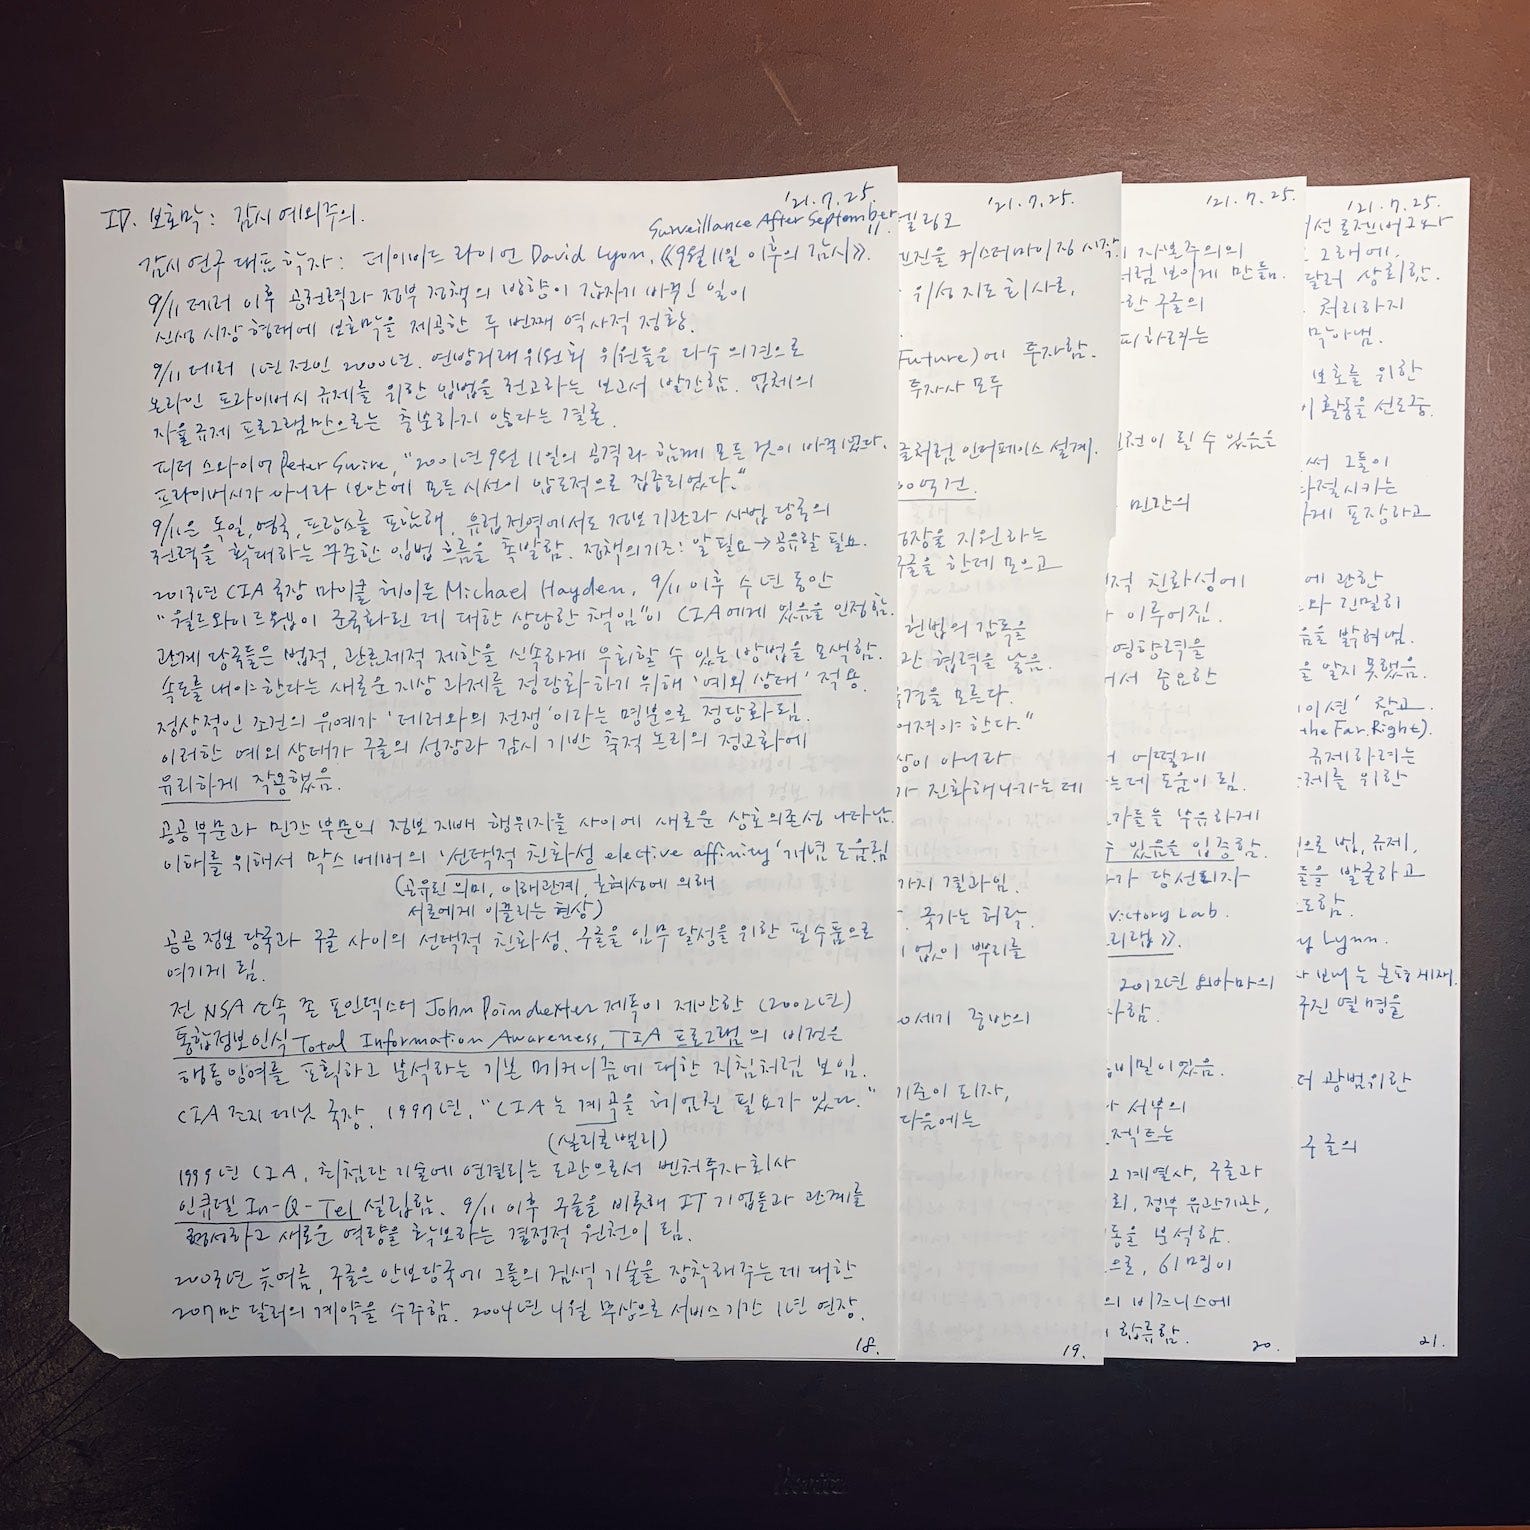 '21. 7. 25.
IV. 보호막: 감시 예외주의.
Surveillance After September 11.
감시 연구 대표 학자: 데이비드 라이언 David Lyon, 《9월 11일 이후의 감시》.
9/11 테러 이후 공권력과 정부 정책의 방향이 갑자기 바뀐 일이
신생 시장 형태에 보호막을 제공한 두 번째 역사적 정황.
9/11 테러 1년 전인 2000년. 연방거래위원회 위원들은 다수 의견으로
온라인 프라이버시 규제를 위한 입법을 권고하는 보고서 발간함. 업체의
자율규제 프로그램만으로는 충분하지 않다는 결론.
피터 스와이어 Peter Swire, "2001년 9월 11일의 공격과 함께 모든 것이 바뀌었다.
프라이버시가 아니라 보안에 모든 시선이 압도적으로 집중되었다."
9/11은 독일, 영국, 프랑스를 포함해, 유럽 전역에서도 정보기관과 사법 당국의
권력을 확대하는 꾸준한 입법 흐름을 촉발함. 정책의 기조: 알 필요→공유할 필요.
2013년 CIA 국장 마이클 헤이든 Michael Hayden, 9/11 이후 수년 동안
"월드와이드웹이 군국화된 데 대한 상당한 책임"이 CIA에게 있음을 인정함.
관계 당국들은 법적, 관료제적 제한을 신속하게 우회할 수 있는 방법을 모색함.
속도를 내야 한다는 새로운 지상 과제를 정당화하기 위해 '예외 상태' 적용.
정상적인 조건의 유예가 '테러와의 전쟁'이라는 명분으로 정당화됨.
이러한 예외 상태가 구글의 성장과 감시 기반 축적 논리의 정교화에
유리하게 작용했음.
공공부문과 민간 부문의 정보 지배 행위자들 사이에 새로운 상호의존성 나타남.
이해를 위해서 막스 베버의 '선택적 친화성 elective affinity' 개념 도움됨
(공유된 의미, 이해관계, 호혜성에 의해
서로에게 이끌리는 현상)
공공 정보 당국과 구글 사이의 선택적 친화성. 구글을 임무 달성을 위한 필수품으로
여기게 됨.
전 NSA 소속 존 포인덱스터 John Poindexter 제독이 제안한 (2002년)
통합정보인식 Total Information Awareness, TIA 프로그램의 비전은
행동잉여를 포획하고 분석하는 기본 메커니즘에 대한 지침처럼 보임.
CIA 조지 테닛 국장. 1997년, "CIA는 계곡을 헤엄칠 필요가 있다."
(실리콘밸리)
1999년 CIA, 최첨단 기술에 연결되는 도관으로서 벤처투자회사
인큐텔 In-Q-Tel 설립함. 9/11 이후 구글을 비롯해 IT 기업들과 관계를
형성하고 새로운 역량을 확보하는 결정적 원천이 됨.
2003년 늦여름, 구글은 안보당국에 그들의 검색 기술을 장착해주는 데 대한
207만 달러의 계약을 수주함. 2004년 4월 무상으로 서비스 기간 1년 연장.
18.
'21. 7. 25.
버전을 커스터마이징 시작.
위성지도 회사로,
Future)에 투자함.
투자사 모두
구글처럼 인터페이스 설계.
00억 건.
성장을 지원하는
구글을 한데 모으고
헌법의 감독을
협력을 낳음.
모른다.
어져야 한다."
상이 아니라
가 진화해나가는 데
가지 결과임.
국가는 허락
없이 뿌리를
0세기 중반의
기준이 되자,
다음에는
19.
'21. 7. 25.
자본주의의
처럼 보이게 만듦.
구글의
피하려는
원천이 될 수 있음을
민간의
적 친화성에
이루어짐.
영향력을
서 중요한
어떻게
는데 도움이 됨.
가들을 부유하게
수 있음을 입증함.
가 당선되자
Victory Lab.
리랩》.
2012년 오바마의
비밀이 있음.
서부의
젝트는
계열사, 구글과
회, 정부 유관기관,
동을 분석함.
으로, 61명이
의 비즈니스에
합류함.
20.
'21. 7. 25.
그래에,
달러 상회함.
처리하지
막아냄.
보호를 위한
이 활동을 선도중.
써 그들이
시키는
하게 포장하고
에 관한
와 긴밀히
음을 밝혀냄.
을 알지 못했음.
이션' 참고.
the Far Right).
규제하려는
규제를 위한
으로 법, 규제,
들을 발굴하고
도함.
Lynn.
보내는 논평 게재.
구진 열 명을
더 광범위한
구글의
21.